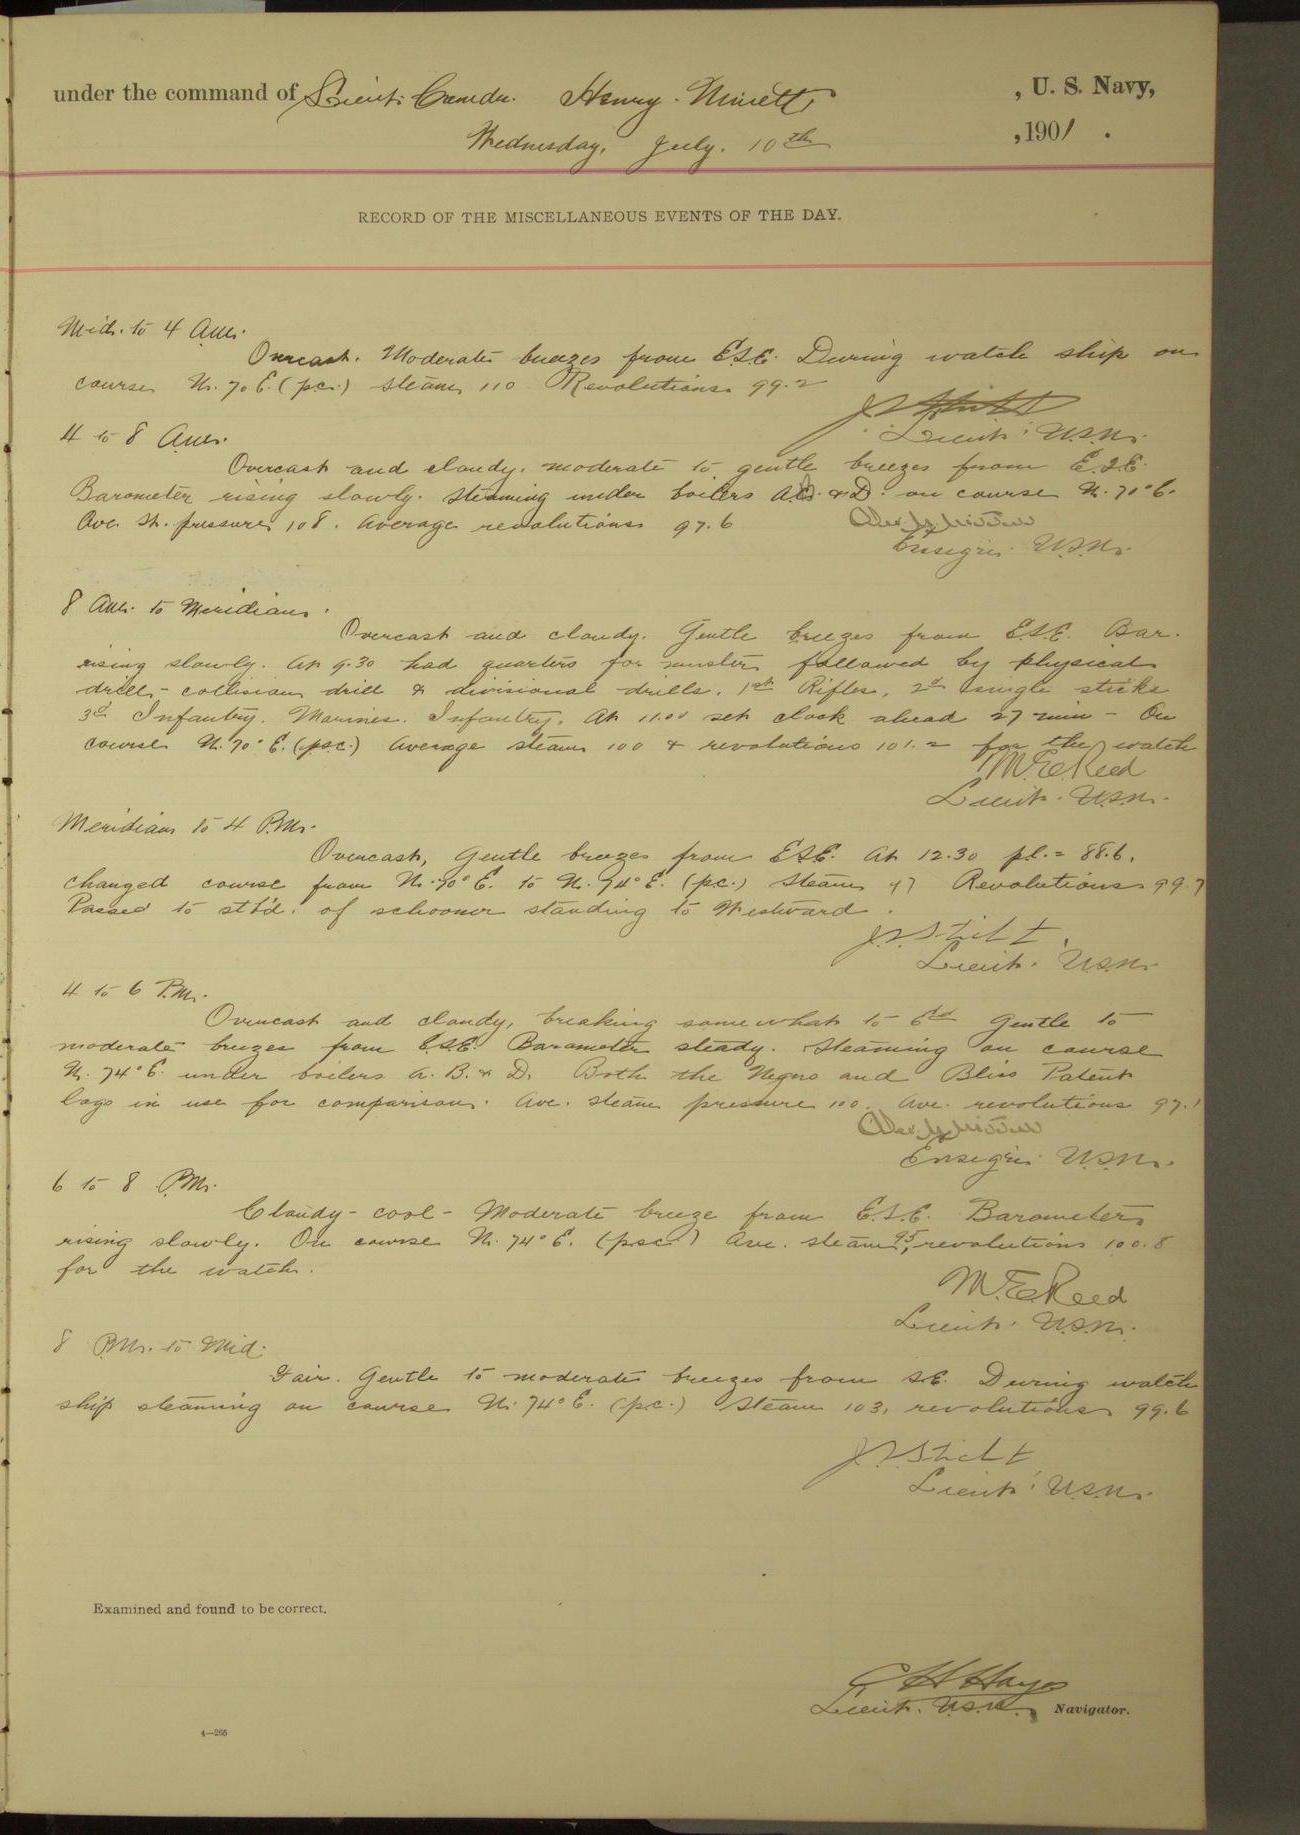 under the command of Lieut. Comdr. Henry Minett, U. S. Navy,
Wednesday, July. 10th, 1901.
RECORD OF THE MISCELLANEOUS EVENTS OF THE DAY.
Mid. to 4 A.M.
Overcast. Moderate breezes from E.S.E. During watch ship on
course N. 70 E. (p.c.) steam 110 Revolutions 99.2
Lieut. U.S.N.
4 to 8 A.M.
Overcast and cloudy. moderate to gentle breezes from E.S.E.
Barometer rising slowly. Steaming under boilers A. & D. on course N. 70° E.
Ave. St. pressure 108. Average revolutions 97.6
Ensign U.S.N.
8 A.M. to Meridian.
Overcast and cloudy. Gentle breezes from E.S.E. Bar.
rising slowly. At 9.30 had quarters for muster followed by physical
drill - collision drill & divisional drills. 1st Rifles, 2d single sticks
3d Infantry. Marines. Infantry. At 11.00 set clock ahead 27 min - On
course N. 70° E. (psc.) Average steam 100 & revolutions 101.2 for the watch
M. E. Reed
Lieut. U.S.N.
Meridian to 4 P.M.
Overcast, Gentle breezes from E.S.E. At 12.30 p.l. = 88.6,
changed course from N. 70° E. to N. 74° E. (p.c.) Steam 97 Revolutions 99.7
Passed to stb'd. of schooner standing to Westward.
Lieut. U.S.N.
4 to 6 P.M.
Overcast and cloudy, breaking somewhat to E'd Gentle to
moderate breezes from E.S.E. Barometer steady. Steaming on course
N. 74° E. under boilers A. B. & D. Both the Negus and Bliss Patent
logs in use for comparison. Ave. steam pressure 100. Ave. revolutions 97.1
Ensign U.S.N.
6 to 8 P.M.
Cloudy - cool - Moderate breeze from E.S.E. Barometer
rising slowly. On course N. 74° E. (psc.) Ave. steam 95, revolutions 100.8
for the watch.
M. E. Reed
Lieut. U.S.N.
8 P.M. to Mid.
Fair. Gentle to moderate breezes from S.E. During watch
ship steaming on course N. 74° E. (p.c.) Steam 103, revolutions 99.6
Lieut. U.S.N.
Examined and found to be correct.
C H Hayes
Lieut. U.S.N., Navigator.
4—265